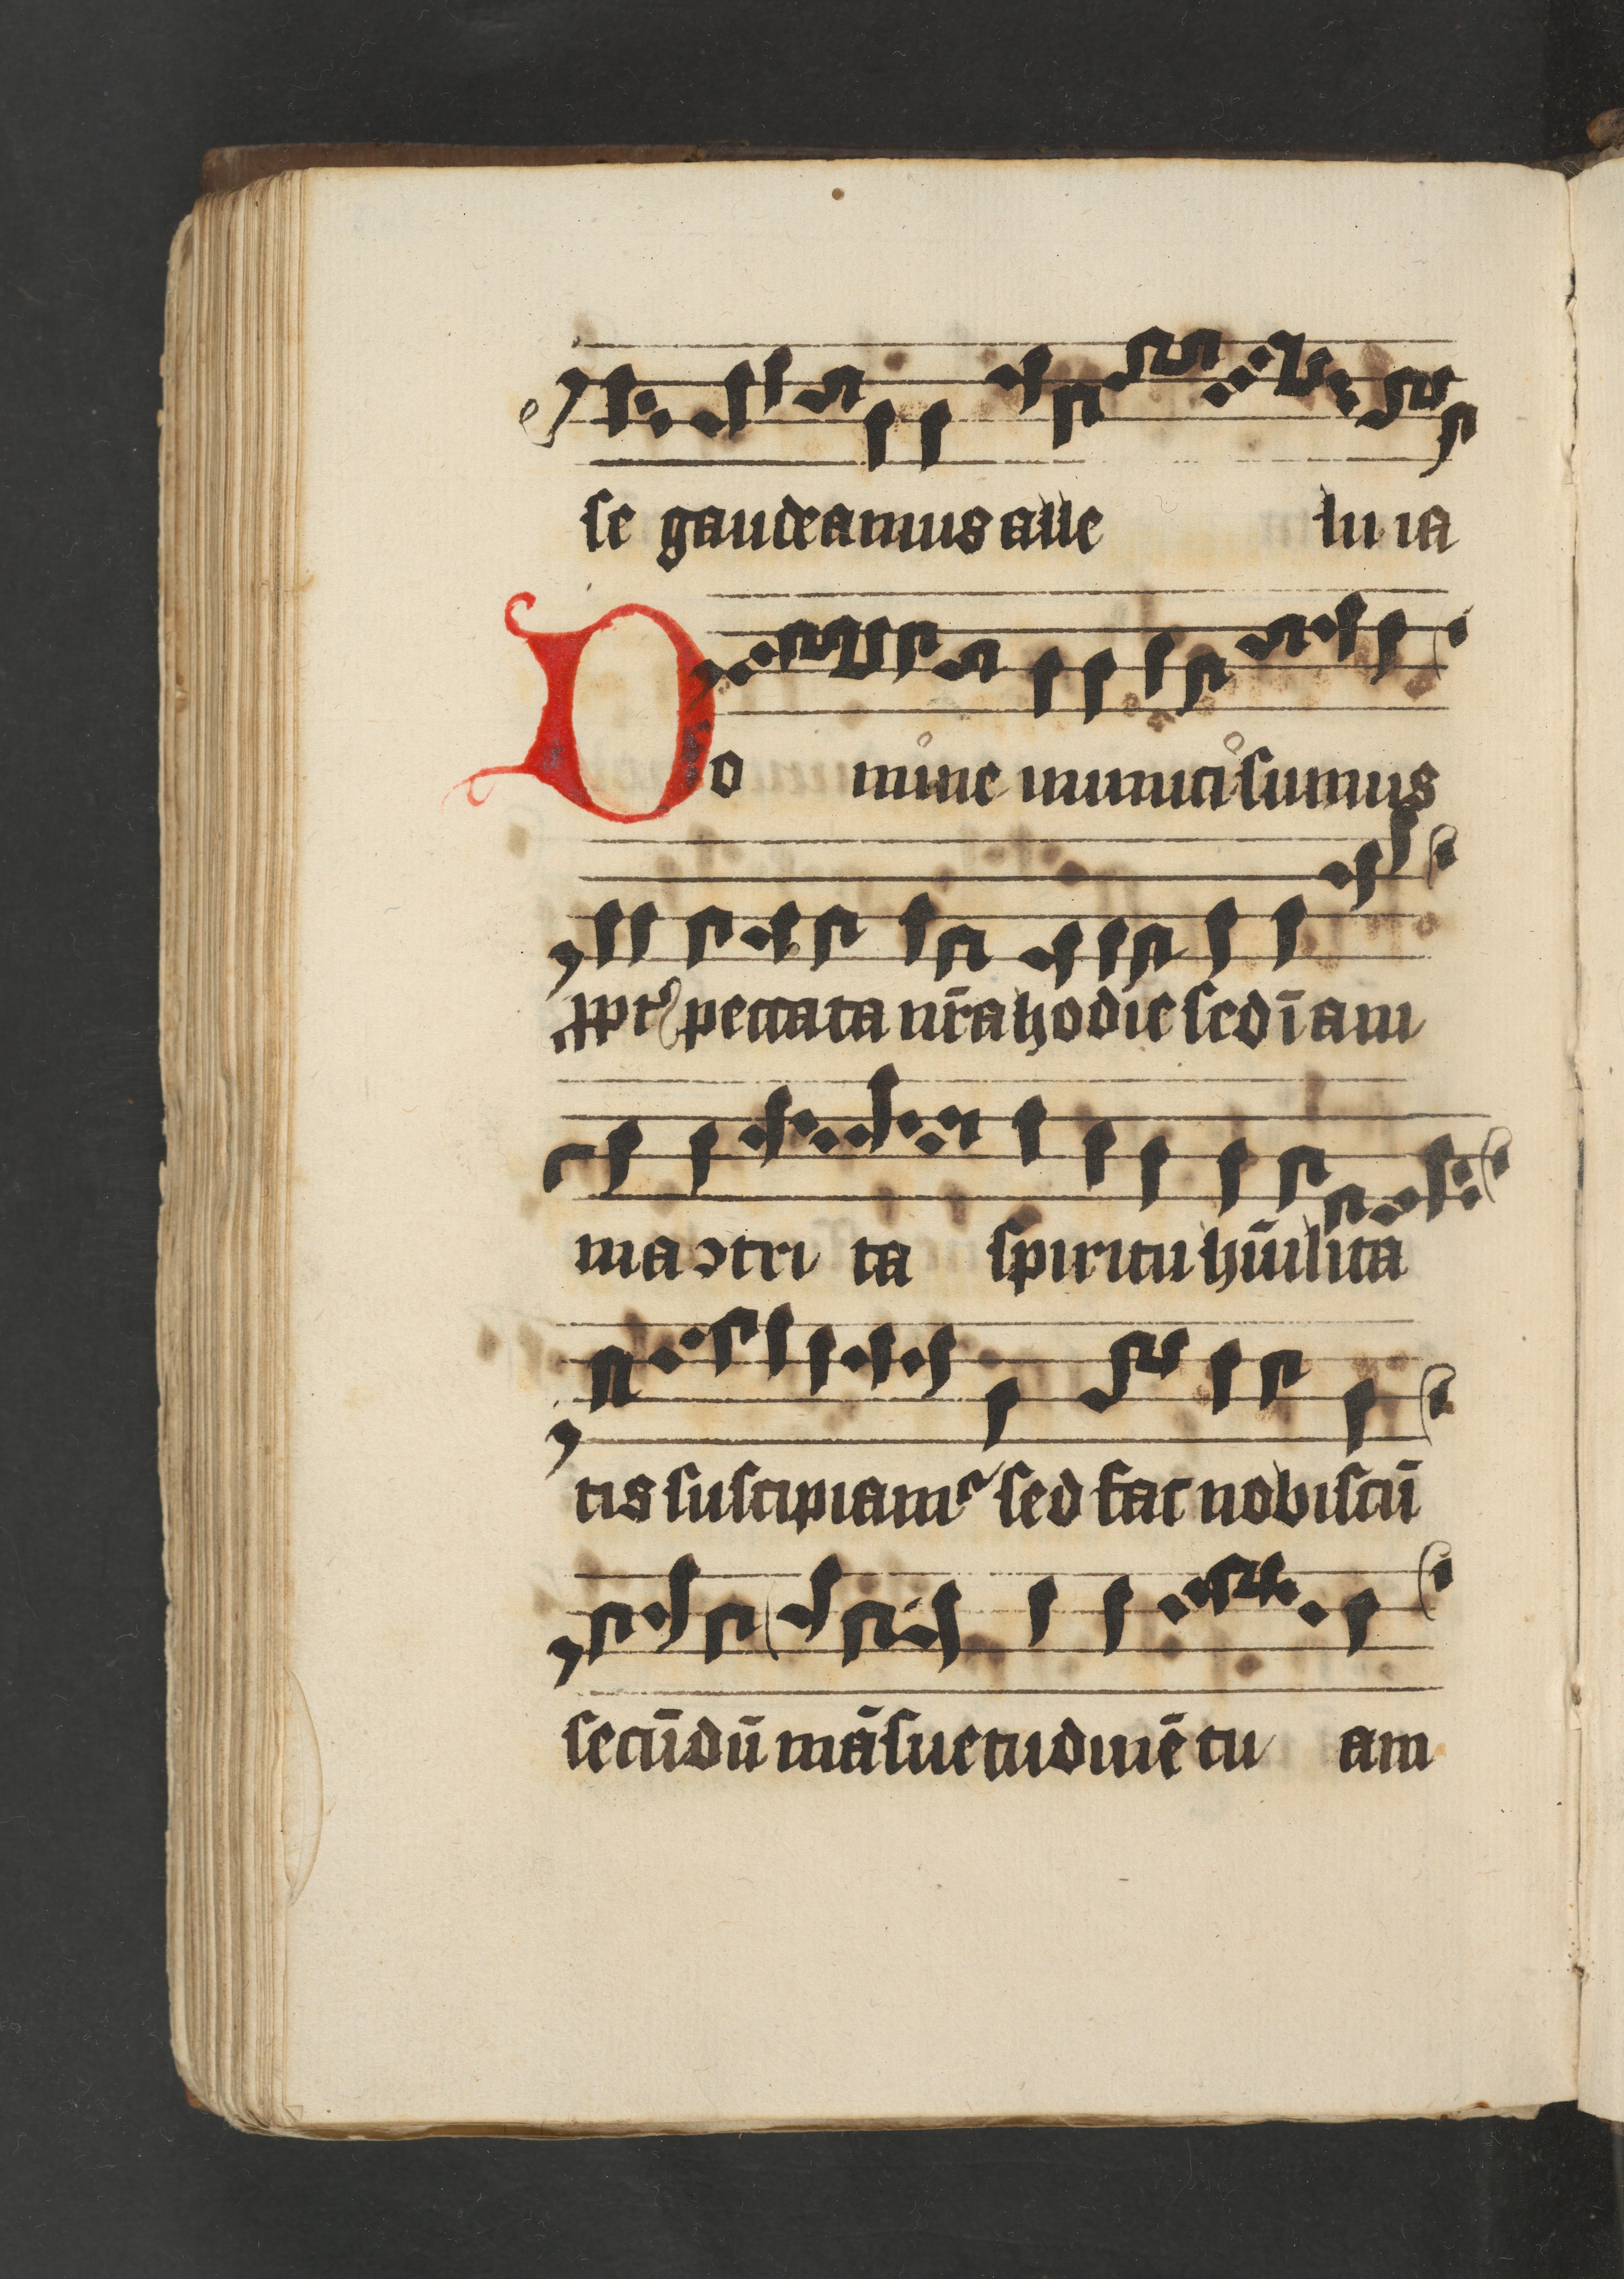 se gaudeamus alle lu ia
Do mine inmiti sumus
ꝓpt᷑ peccata nr̄a hodie sed ī am
ma ↄtri ta spiritu hūilita
tis suscipiamꝰ sed fac nobiscū
secūdū māsuetudinē tu am